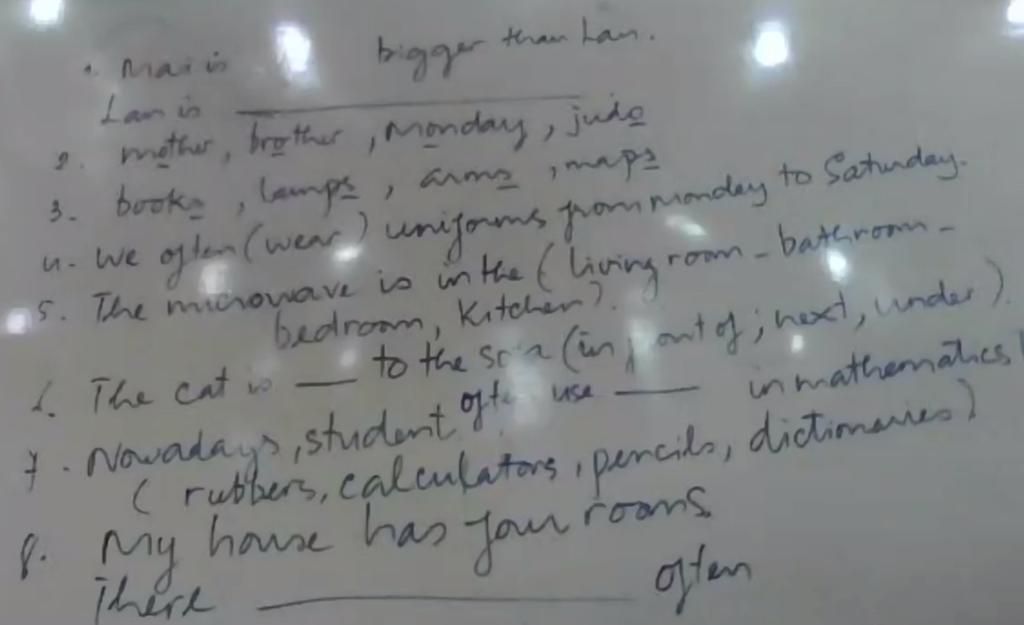 1. Mai is bigger than Lan.
Lan is ____
2. mother, brother, Monday, judo
3. books, lamps, arms, maps
4. We often (wear) uniforms from monday to Saturday.
5. The microwave is in the (living room - bathroom -
bedroom, kitchen).
6. The cat is ____ to the (in, out of; next, under).
7. Nowadays, student often use ____ in mathematics
( rubbers, calculators, pencils, dictionaries)
8. My house has four rooms.
There ____ often